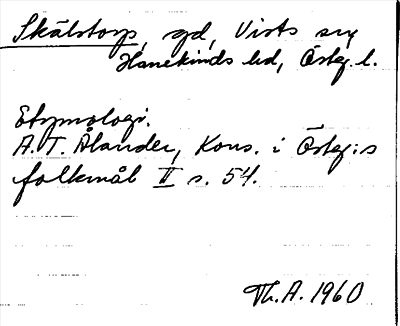 Skälstorp, gd, Vists sn
Hanekinds hd, Östg. l.
Etymologi.
A. T. Ålander, Kons. i Östg:s
folkmål II s. 54.
Th. A. 1960